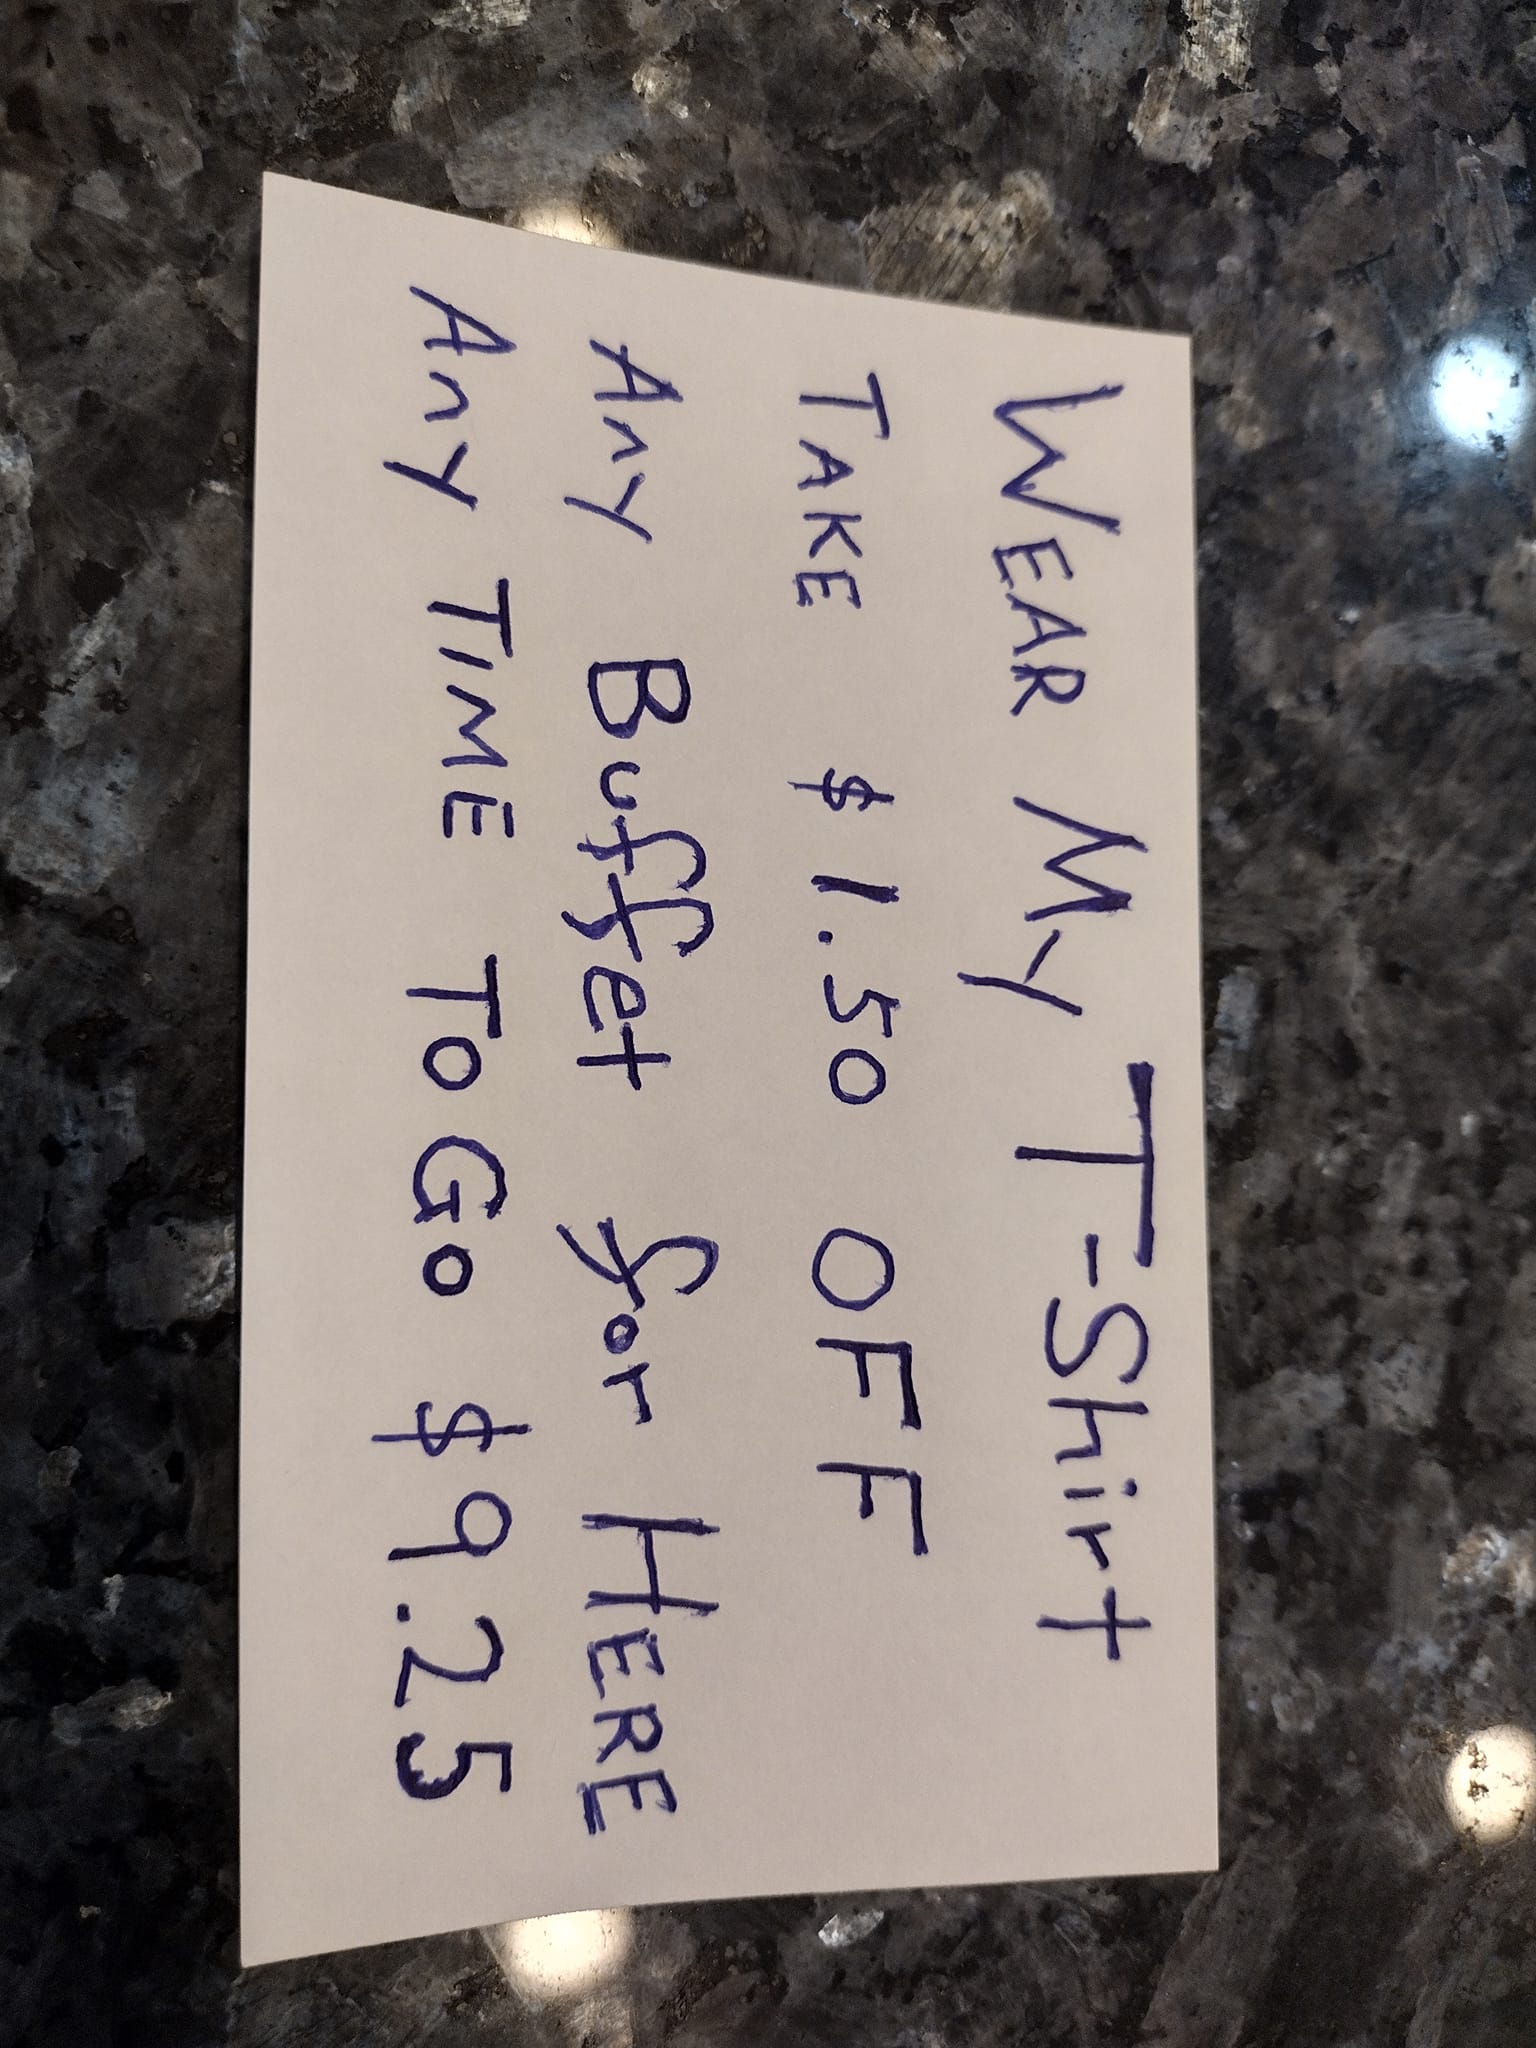 WEAR MY T-Shirt
TAKE $1.50 OFF
Any Buffet for HERE
Any TIME TO Go $9.25